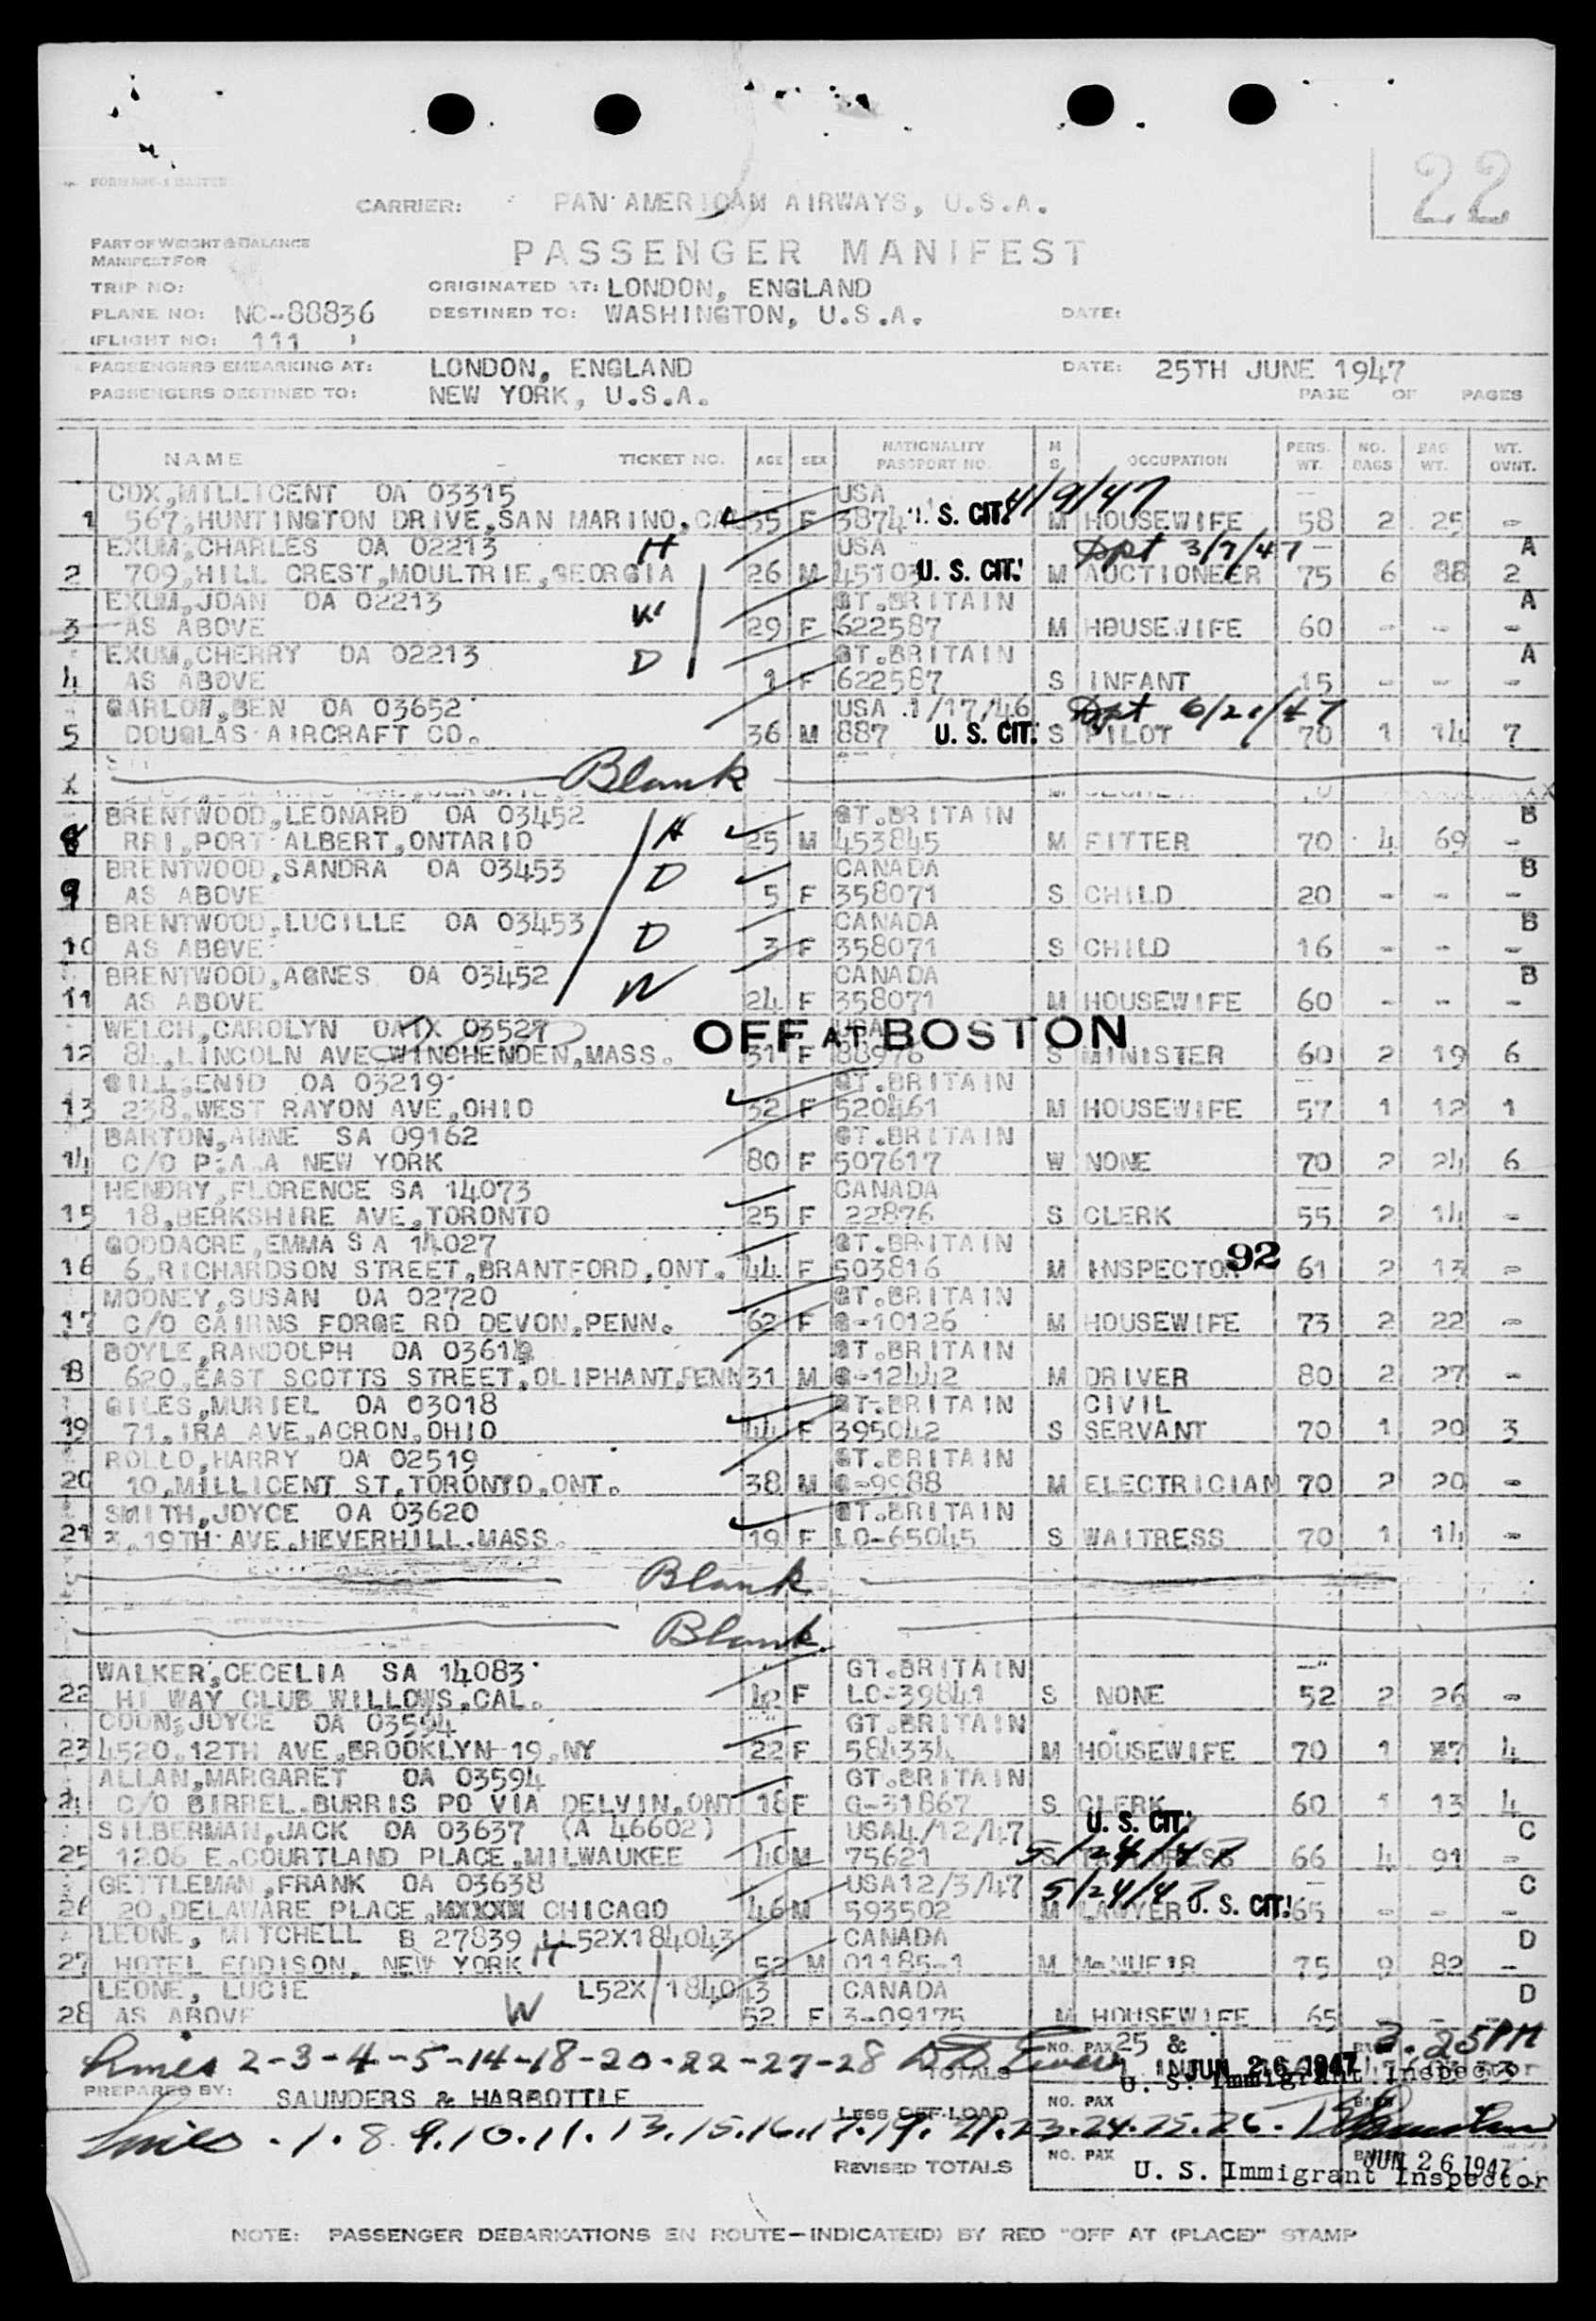 22
CARRIER: PAN AMERICAN AIRWAYS, U.S.A.
PART OF WEIGHT & BALANCE
MANIFEST FOR
PASSENGER MANIFEST
TRIP NO: ORIGINATED AT: LONDON, ENGLAND
PLANE NO: NC-88836 DESTINED TO: WASHINGTON, U.S.A. DATE:
(FLIGHT NO: 111 )
PASSENGERS EMBARKING AT: LONDON, ENGLAND DATE: 25TH JUNE 1947
PASSENGERS DESTINED TO: NEW YORK, U.S.A. PAGE OF PAGES
NAME TICKET NO. AGE SEX NATIONALITY PASSPORT NO. M S. OCCUPATION PERS. WT. NO. BAGS BAG WT. WT. OVNT.
COX,MILLICENT OA 03315 USA 4/9/47
1 567,HUNTINGTON DRIVE,SAN MARINO,CAL 35 F 3874 U. S. CIT. M HOUSEWIFE 58 2 25 -
EXUM,CHARLES OA 02213 H USA Dpt 3/7/47 A
2 709,HILL CREST,MOULTRIE,GEORGIA 26 M 45103 U. S. CIT. M AUCTIONEER 75 6 88 2
EXUM,JOAN OA 02213 W GT.BRITAIN A
3 AS ABOVE 29 F 622587 M HOUSEWIFE 60 - - -
EXUM,CHERRY OA 02213 D GT.BRITAIN A
4 AS ABOVE 1 F 622587 S INFANT 15 - - -
GARLOW,BEN OA 03652 USA 1/17/46 Dpt 6/21/47
5 DOUGLAS AIRCRAFT CO. 36 M 887 U. S. CIT. S PILOT 70 1 14 7
Blank
BRENTWOOD,LEONARD OA 03452 H GT.BRITAIN B
8 RR1,PORT ALBERT,ONTARIO 25 M 453845 M FITTER 70 4 69 -
BRENTWOOD,SANDRA OA 03453 D CANADA B
9 AS ABOVE 5 F 358071 S CHILD 20 - - -
BRENTWOOD,LUCILLE OA 03453 D CANADA B
10 AS ABOVE 3 F 358071 S CHILD 16 - - -
BRENTWOOD,AGNES OA 03452 W CANADA B
11 AS ABOVE 24 F 358071 M HOUSEWIFE 60 - - -
WELCH,CAROLYN OATX 03527 OFF AT BOSTON USA
12 84,LINCOLN AVE,WINCHENDEN,MASS. 31 F 88976 S MINISTER 60 2 19 6
GILL,ENID OA 03219 GT.BRITAIN
13 238,WEST RAYON AVE,OHIO 32 F 520461 M HOUSEWIFE 57 1 12 1
BARTON,ANNE SA 09162 GT.BRITAIN
14 C/O P.A.A NEW YORK 80 F 507617 W NONE 70 2 24 6
HENDRY,FLORENCE SA 14073 CANADA
15 18,BERKSHIRE AVE,TORONTO 25 F 22876 S CLERK 55 2 14 -
GOODACRE,EMMA SA 14027 GT.BRITAIN
16 6,RICHARDSON STREET,BRANTFORD,ONT. 44 F 503816 M INSPECTOR 92 61 2 13 -
MOONEY,SUSAN OA 02720 GT.BRITAIN
17 C/O CAIRNS FORGE RD DEVON,PENN. 62 F G-10126 M HOUSEWIFE 73 2 22 -
BOYLE,RANDOLPH OA 03614 GT.BRITAIN
18 620,EAST SCOTTS STREET,OLIPHANT,PENN 31 M G-12442 M DRIVER 80 2 27 -
GILES,MURIEL OA 03018 GT.BRITAIN CIVIL
19 71,IRA AVE,ACRON,OHIO 44 F 395042 S SERVANT 70 1 20 3
ROLLO,HARRY OA 02519 GT.BRITAIN
20 10,MILLICENT ST,TORONTO,ONT. 38 M G-9988 M ELECTRICIAN 70 2 20 -
SMITH,JOYCE OA 03620 GT.BRITAIN
21 3,19TH AVE,HEVERHILL,MASS. 19 F LO-65045 S WAITRESS 70 1 14 -
Blank
Blank
WALKER,CECELIA SA 14083 GT.BRITAIN
22 HI WAY CLUB WILLOWS,CAL. 42 F LO-39841 S NONE 52 2 26 -
COON,JOYCE OA 03594 GT.BRITAIN
23 4520,12TH AVE,BROOKLYN-19,NY 22 F 584334 M HOUSEWIFE 70 1 17 4
ALLAN,MARGARET OA 03594 GT.BRITAIN
24 C/O BIRREL.BURRIS PO VIA DELVIN,ONT 18 F G-31867 S CLERK 60 1 13 4
SILBERMAN,JACK OA 03637 (A 46602) USA4/12/47 U. S. CIT. C
25 1206 E.COURTLAND PLACE,MILWAUKEE 40 M 75621 S 5/24/47 66 4 91 -
GETTLEMAN,FRANK OA 03638 USA12/3/47 5/24/47 C
26 20,DELAWARE PLACE,XXXXX CHICAGO 46 M 593502 M LAWYER U. S. CIT. 65 - - -
LEONE, MITCHELL B 27839 LL52X184043 CANADA D
27 HOTEL EDDISON, NEW YORK H 52 M 01185-1 M MANUFIR 75 9 82 -
LEONE, LUCIE L52X 184043 CANADA D
28 AS ABOVE W 52 F 3-09175 M HOUSEWIFE 65 - - -
Lines 2-3-4-5-14-18-20-22-27-28 TOTALS NO. PAX 25 & 1 INF JUN 26 1947 3.25PM
U. S. Immigrant Inspector
PREPARED BY: SAUNDERS & HARBOTTLE
LESS OFF-LOAD NO. PAX BAGS
Lines .1.8.9.10.11.13.15.16.17.19.21.23.24.25.26.
REVISED TOTALS NO. PAX JUN 26 1947
U. S. Immigrant Inspector
NOTE: PASSENGER DEBARKATIONS EN ROUTE-INDICATE(D) BY RED "OFF AT (PLACE)" STAMP